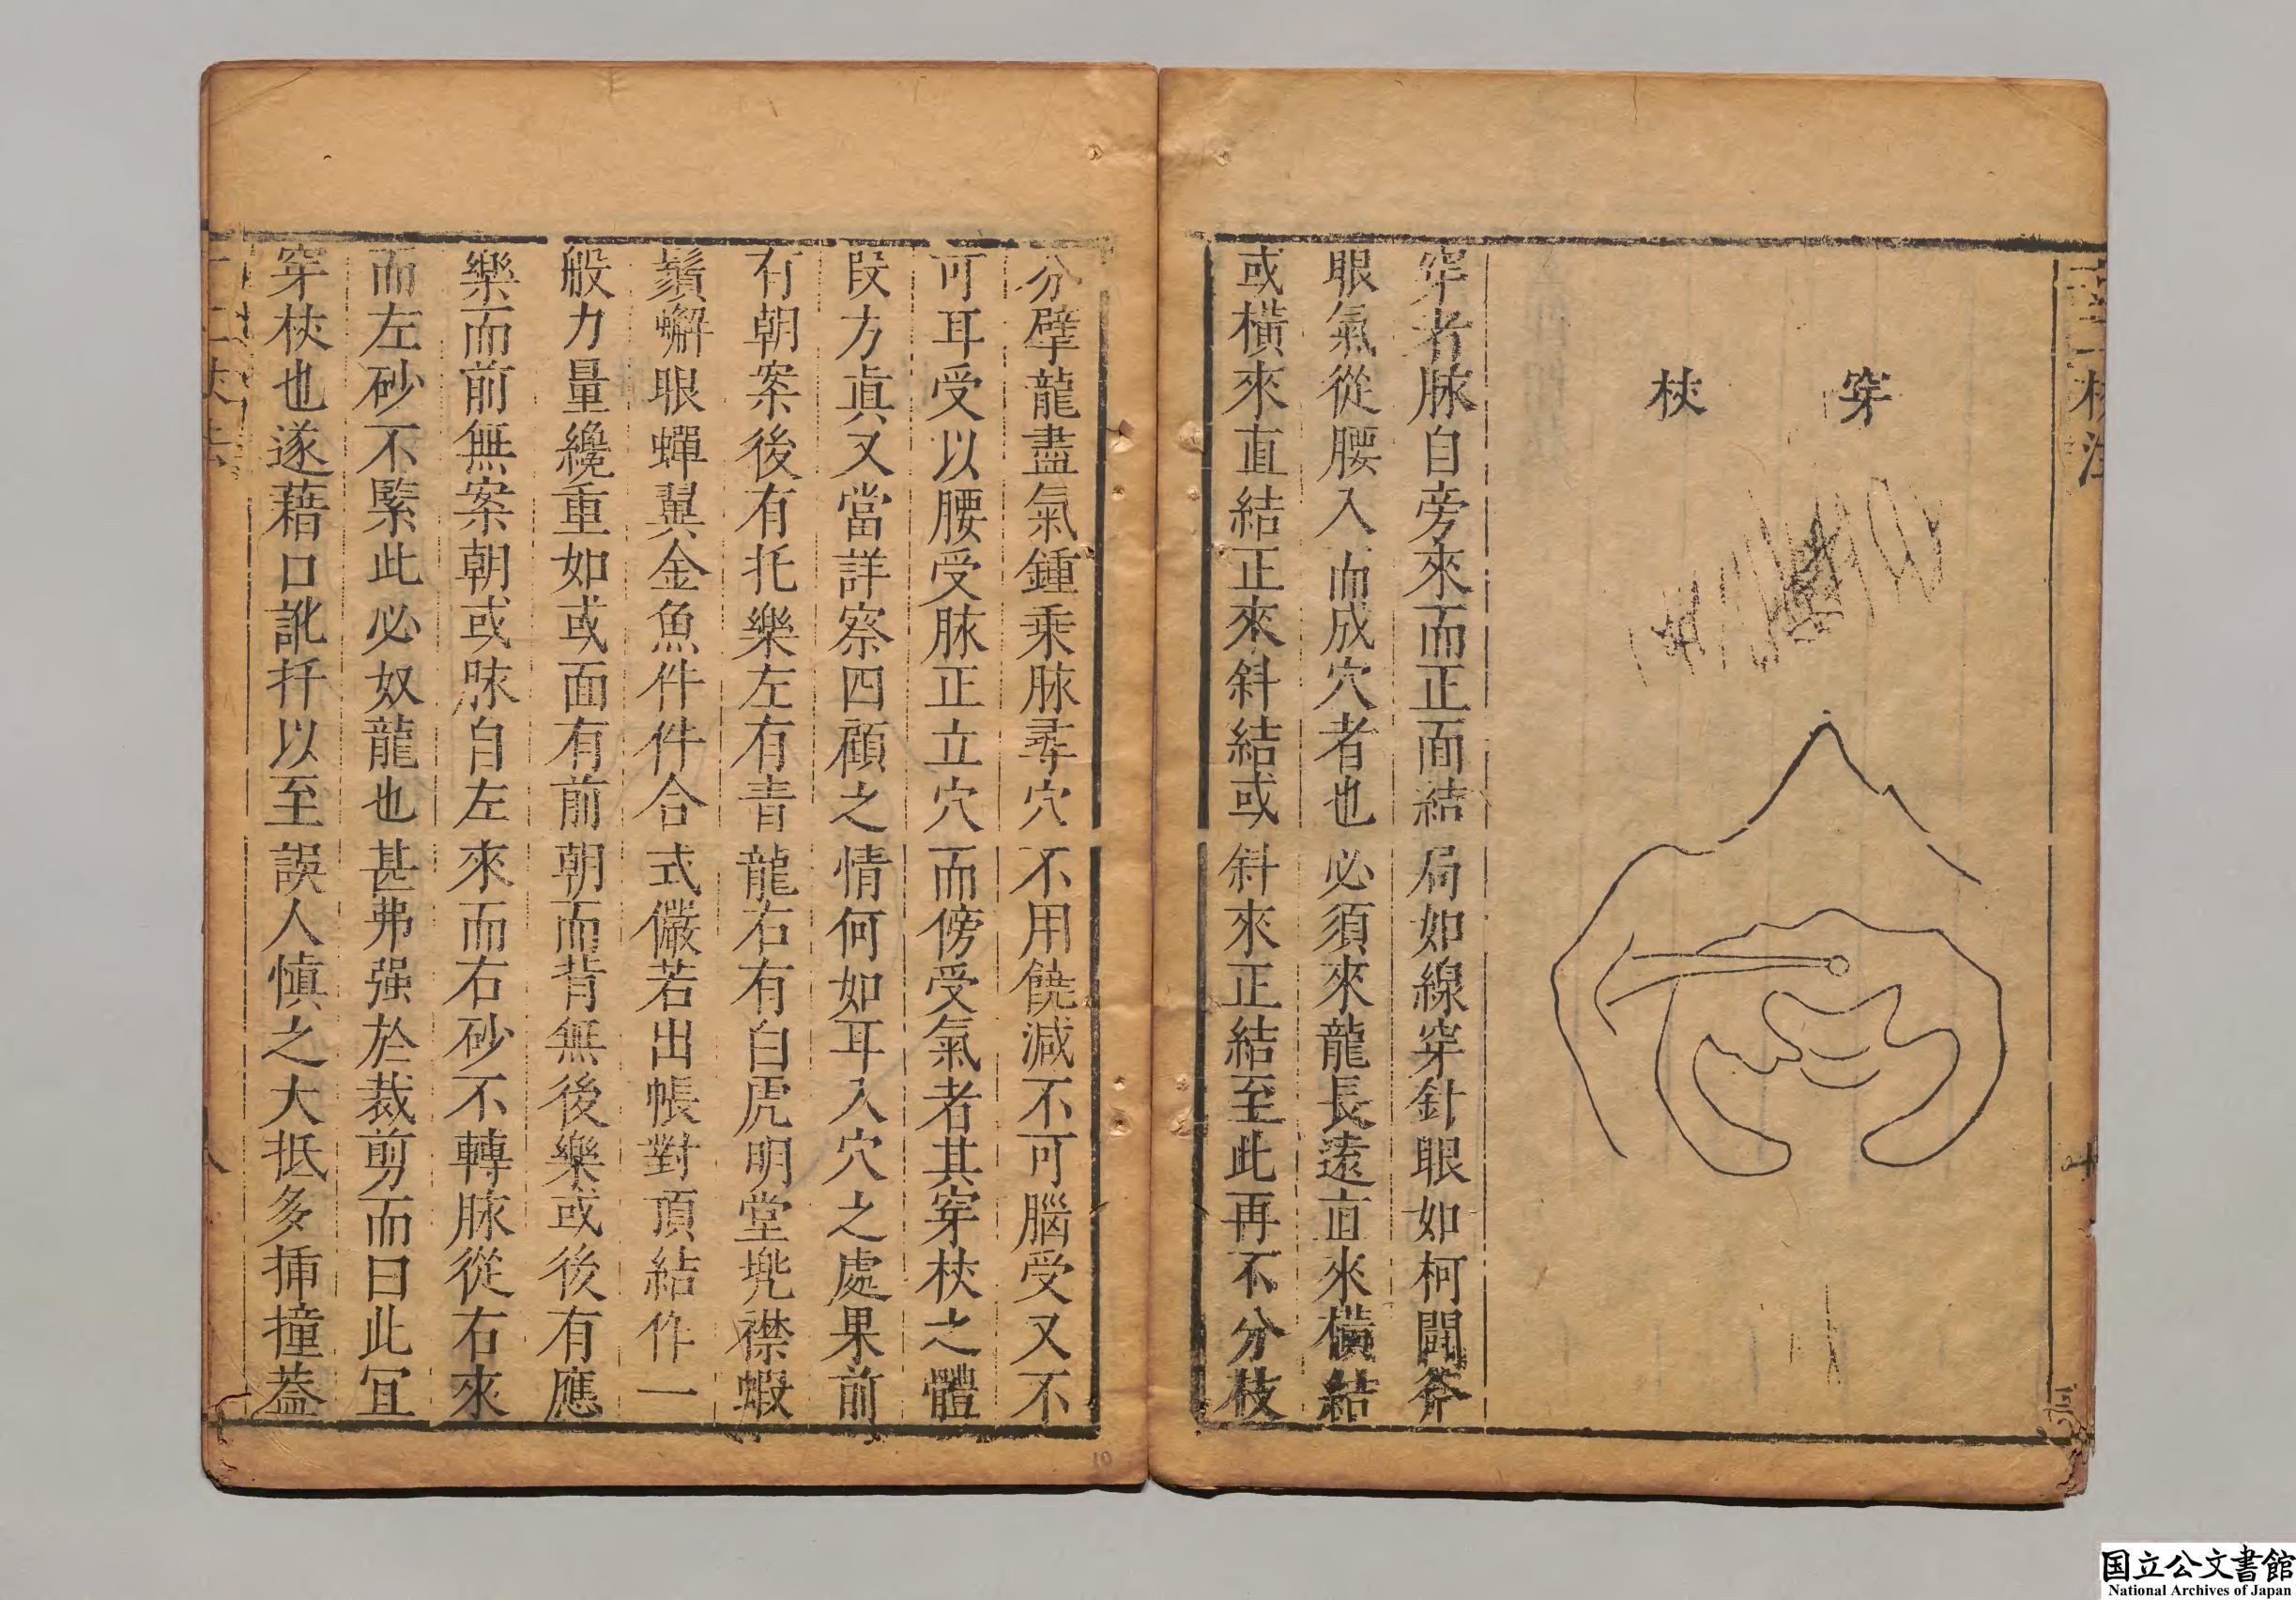 穿 杖
穿者脉自旁來而正面結局如線穿針眼如柯鬪斧
眼氣從腰入而成穴者也必須來龍長遠直來橫結
或橫來直結正來斜結或斜來正結至此再不分枝
分擘龍盡氣鍾乘脉尋穴不用饒減不可腦受又不
可耳受以腰受脉正立穴而傍受氣者其穿杖之體
段方眞又當詳察四顧之情何如耳入穴之處果前
有朝案後有托樂左有青龍右有白虎明堂兠襟蝦
鬚蠏眼蟬翼金魚件件合式儼若出帳對頂結作一
般力量纔重如或面有前朝而背無後樂或後有應
樂而前無案朝或脉自左來而右砂不轉脉從右來
而左砂不緊此必奴龍也甚弗强於裁剪而曰此冝
穿杖也遂藉口訛扦以至誤人愼之大抵多揷撞葢
国立公文書館
National Archives of Japan
10